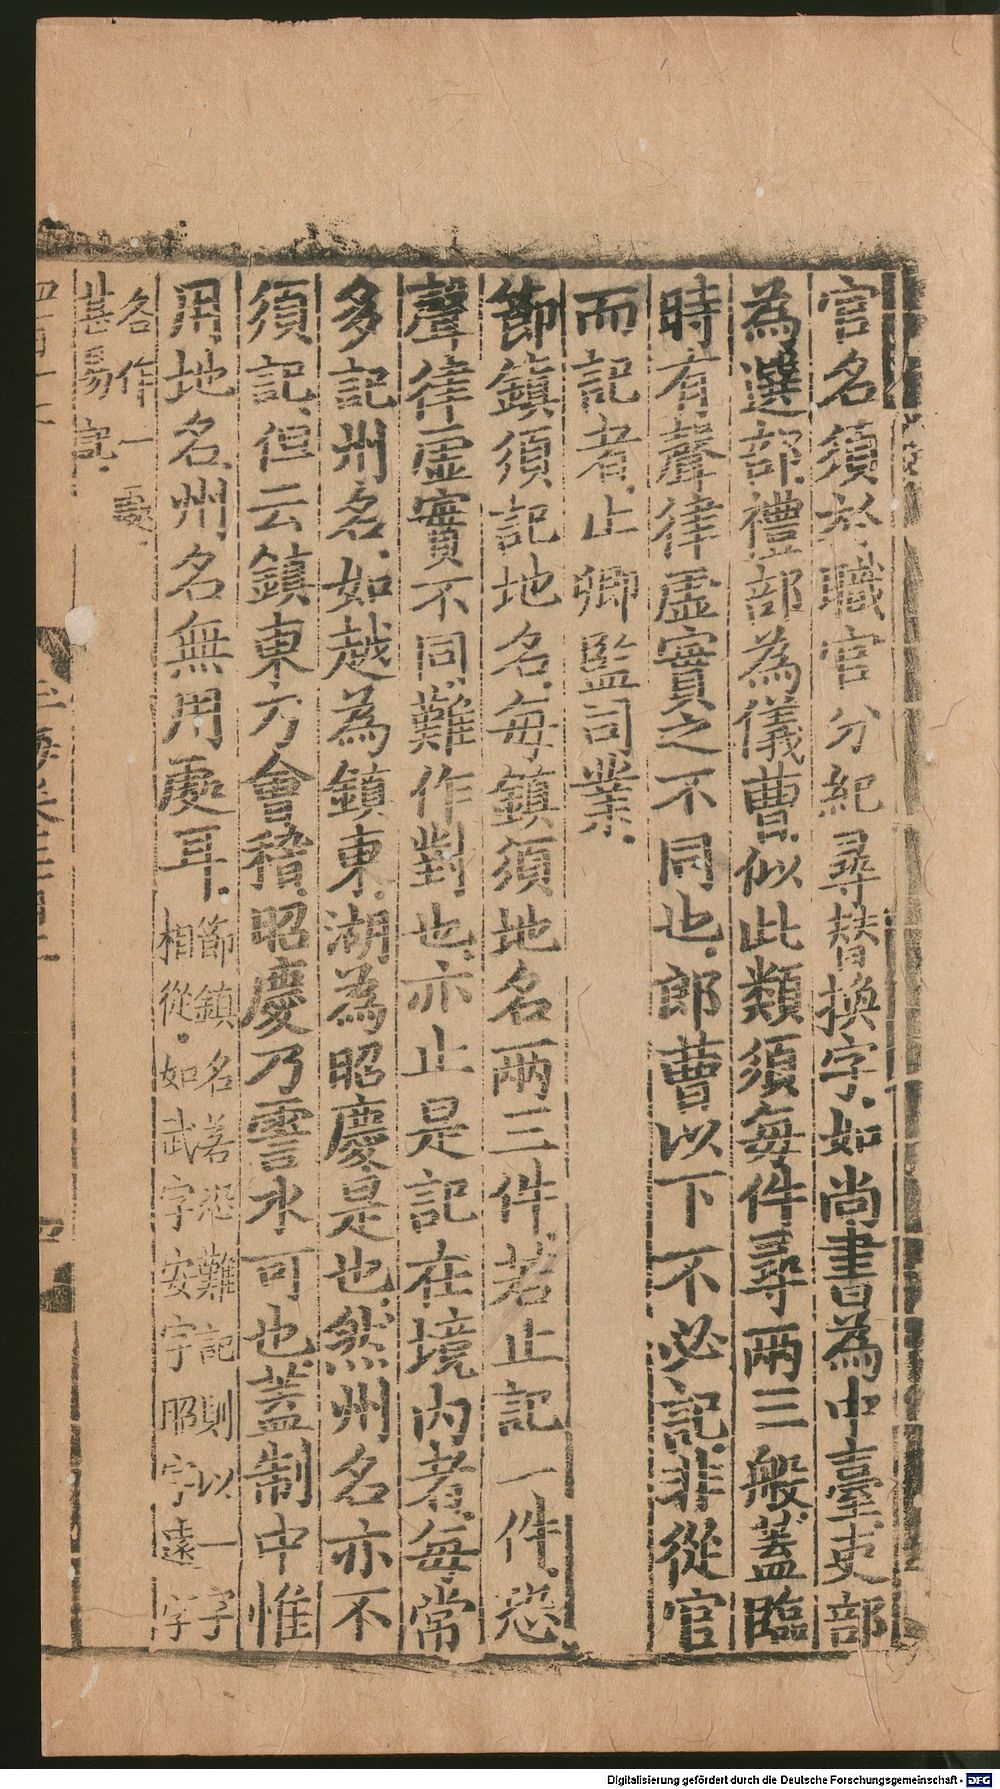 官名須於職官分紀尋替換字如尚書為中臺吏部
為選部禮部為儀曹似此類須每件尋兩三般蓋臨
時有聲律虛實之不同也郎曹以下不必記非從官
而記者止卿監司業
節鎮須記地名每鎮須地名兩三件若止記一件恐
聲律虛實不同難作對也亦止是記在境內者每常
多記州名如越為鎮東湖為昭慶是也然州名亦不
須記但云鎮東乃會稽昭慶乃霅水可也蓋制中惟
用地名州名無用處耳節鎮名若恐難記則以一字
相從如武字安字昭字遠字
各作一處
甚易記
Digitalisierung gefördert durch die Deutsche Forschungsgemeinschaft - DFG